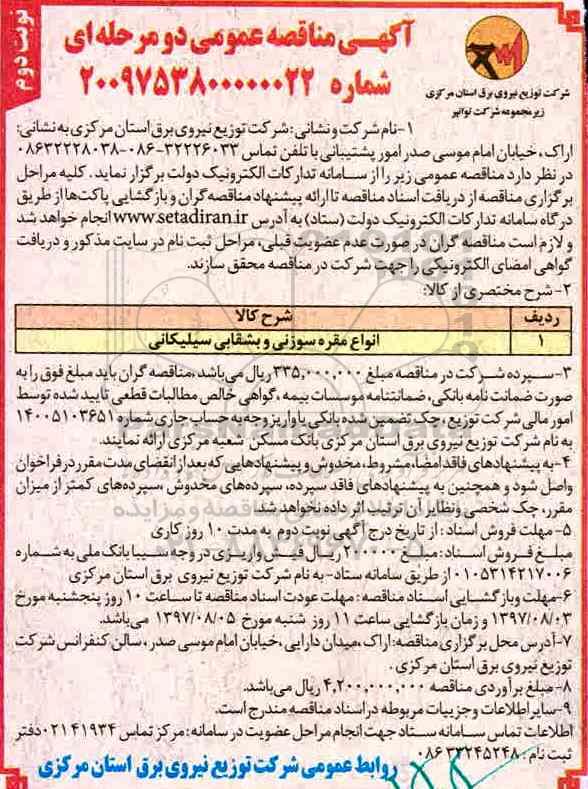 نوبت دوم
آگهی مناقصه عمومی دو مرحله ای
شماره ۲۰۰۹۷۵۳۸۰۰۰۰۰۰۲۲
شرکت توزیع نیروی برق استان مرکزی
زیر مجموعه شرکت توانیر
۱-نام شرکت و نشانی: شرکت توزیع نیروی برق استان مرکزی به نشانی:
اراک، خیابان امام موسی صدر امور پشتیبانی با تلفن تماس ۳۲۲۲۶۰۳۳-۰۸۶-۰۸۶۳۲۲۲۸۰۳۸
در نظر دارد مناقصه عمومی زیر را از سامانه تدارکات الکترونیک دولت برگزار نماید. کلیه مراحل
برگزاری مناقصه از دریافت اسناد مناقصه تا ارائه پیشنهاد مناقصه گران و بازگشایی پاکت‌ها از طریق
درگاه سامانه تدارکات الکترونیک دولت (ستاد) به آدرس www.setadiran.ir انجام خواهد شد
و لازم است مناقصه گران در صورت عدم عضویت قبلی، مراحل ثبت نام در سایت مذکور و دریافت
گواهی امضای الکترونیکی را جهت شرکت در مناقصه محقق سازند.
۲-شرح مختصری از کالا:
ردیف شرح کالا
۱ انواع مقره سوزنی و بشقابی سیلیکانی
۳-سپرده شرکت در مناقصه مبلغ ۲۳۵,۰۰۰,۰۰۰ ریال می‌باشد، مناقصه گران باید مبلغ فوق را به
صورت ضمانت نامه بانکی، ضمانتنامه موسسات بیمه، گواهی خالص مطالبات قطعی تایید شده توسط
امور مالی شرکت توزیع، چک تضمین شده بانکی یا واریز وجه به حساب جاری شماره ۱۴۰۰۵۱۰۳۶۵۱
به نام شرکت توزیع نیروی برق استان مرکزی بانک مسکن شعبه مرکزی ارائه نمایند.
۴-به پیشنهادهای فاقد امضا، مشروط، مخدوش و پیشنهادهایی که بعد از انقضای مدت مقرر در فراخوان
واصل شود و همچنین به پیشنهادهای فاقد سپرده، سپرده‌های مخدوش، سپرده‌های کمتر از میزان
مقرر، چک شخصی و نظایر آن ترتیب اثر داده نخواهد شد.
۵-مهلت فروش اسناد: از تاریخ درج آگهی نوبت دوم به مدت ۱۰ روز کاری
مبلغ فروش اسناد: مبلغ ۲۰۰,۰۰۰ ریال فیش واریزی در وجه سیبا بانک ملی به شماره
۰۱۰۵۳۱۴۲۱۷۰۰۶ از طریق سامانه ستاد-به نام شرکت توزیع نیروی برق استان مرکزی
۶-مهلت و بازگشایی اسناد مناقصه: مهلت عودت اسناد مناقصه تا ساعت ۱۰ روز پنجشنبه مورخ
۱۳۹۷/۰۸/۰۳ و زمان بازگشایی ساعت ۱۱ روز شنبه مورخ ۱۳۹۷/۰۸/۰۵ می‌باشد.
۷-آدرس محل برگزاری مناقصه: اراک، میدان دارایی، خیابان امام موسی صدر، سالن کنفرانس شرکت
توزیع نیروی برق استان مرکزی.
۸-مبلغ برآوردی مناقصه ۴,۲۰۰,۰۰۰,۰۰۰ ریال می‌باشد.
۹-سایر اطلاعات و جزییات مربوطه در اسناد مناقصه مندرج است.
اطلاعات تماس سامانه ستاد جهت انجام مراحل عضویت در سامانه: مرکز تماس ۰۲۱۴۱۹۳۴ دفتر
ثبت نام: ۰۸۶۳۳۲۴۵۲۴۸
روابط عمومی شرکت توزیع نیروی برق استان مرکزی